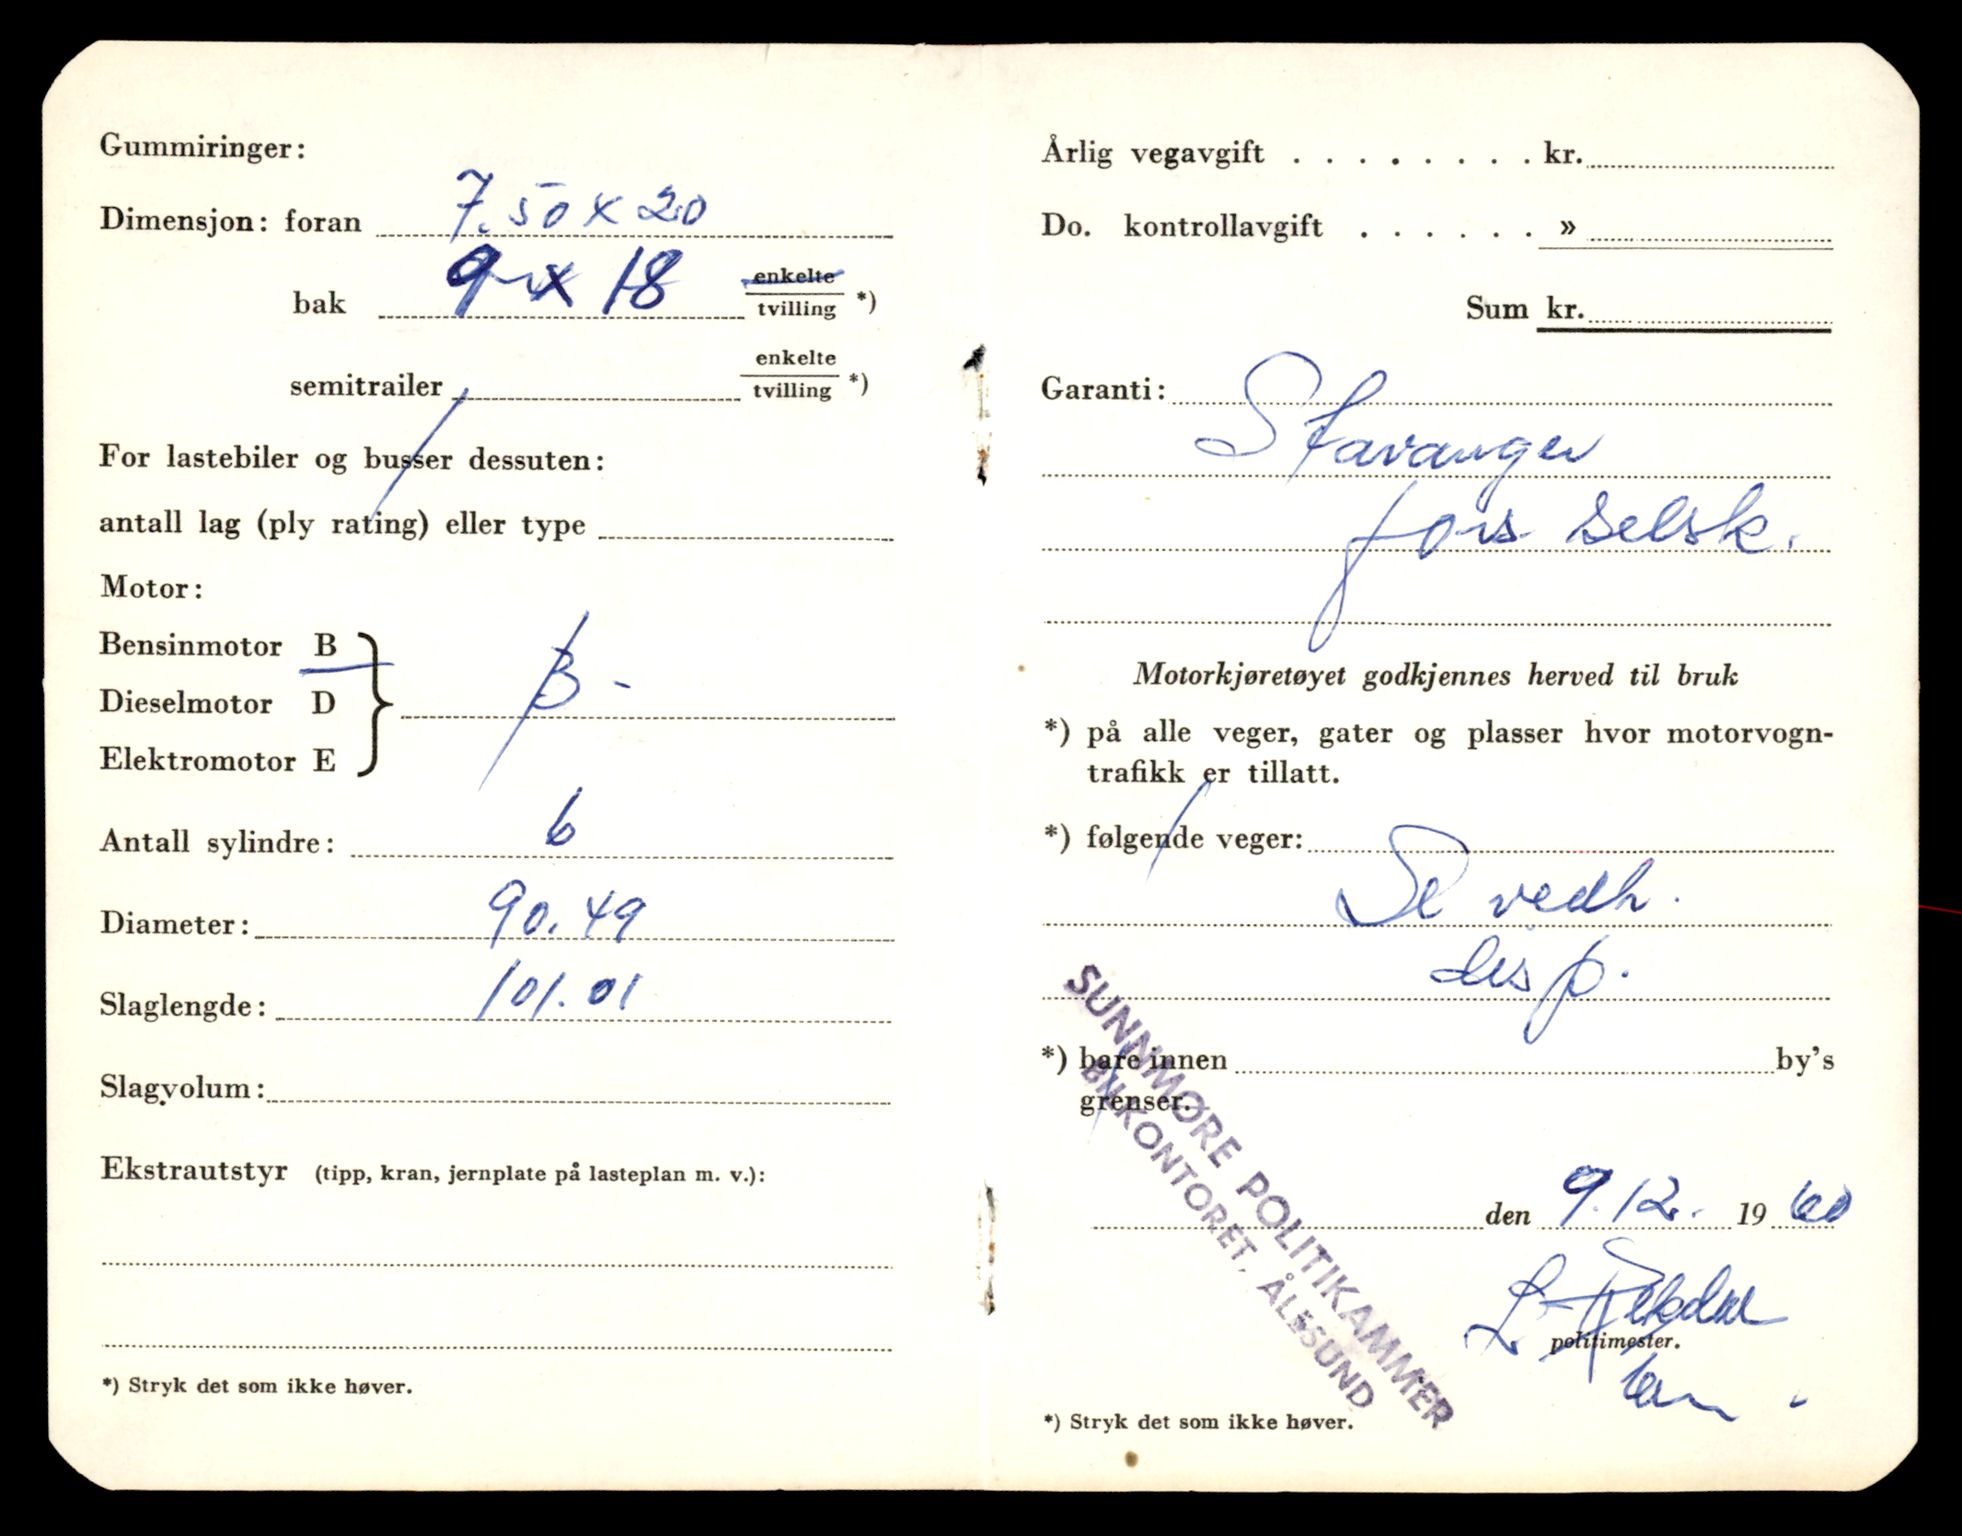 Gummiringer:
Dimensjon: foran 7.50 x 20
bak 9 x 18 enkelte
tvilling *)
semitrailer enkelte
tvilling *)
For lastebiler og busser dessuten:
antall lag (ply rating) eller type
Motor:
Bensinmotor B
Dieselmotor D B -
Elektromotor E
Antall sylindre: 6
Diameter: 90.49
Slaglengde: 101.01
Slagvolum:
Ekstrautstyr (tipp, kran, jernplate på lasteplan m. v.):
*) Stryk det som ikke høver.
Årlig vegavgift . . . . . . . . kr.
Do. kontrollavgift . . . . . . »
Sum kr.
Garanti:
Stavanger
fors selsk.
Motorkjøretøyet godkjennes herved til bruk
*) på alle veger, gater og plasser hvor motorvogn-
trafikk er tillatt.
*) følgende veger:
Se vedh.
disp.
*) bare innen by's
grenser.
SUNNMØRE POLITIKAMMER
BILKONTORET, ÅLESUND
den 9.12. 1960
politimester.
*) Stryk det som ikke høver.